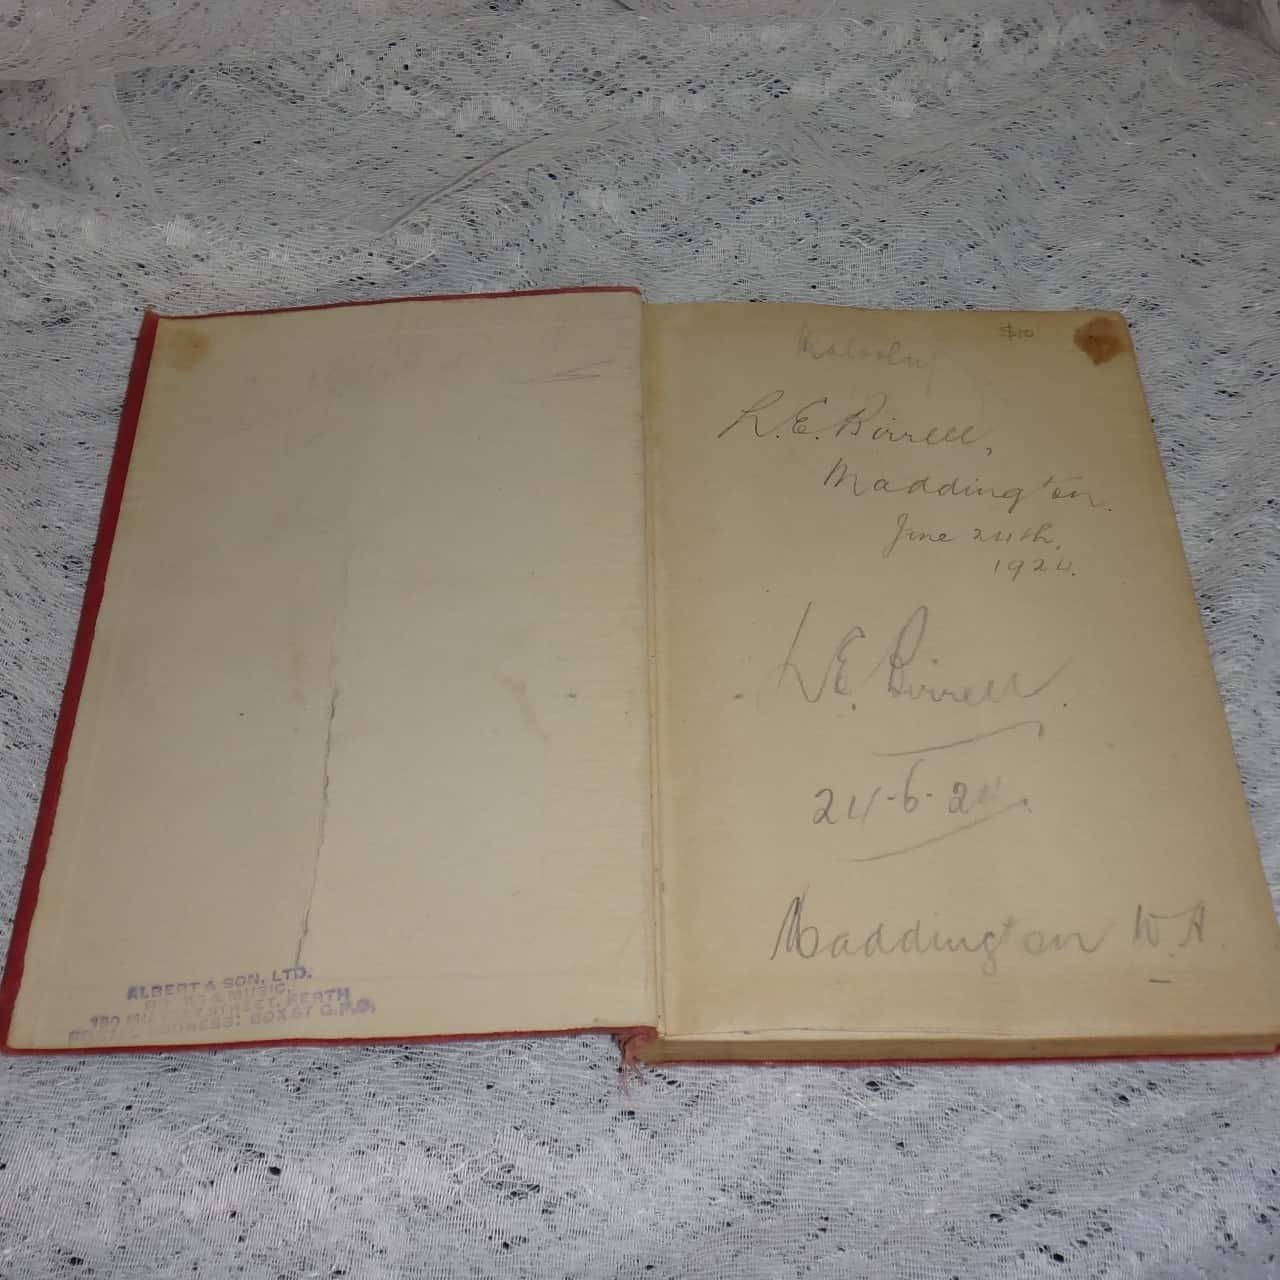 ALBERT & SON, LTD.
BOOKS & MUSIC,
180 MURRAY STREET, PERTH
POSTAL ADDRESS: BOX 67 G.P.O.
Malcolm
$10
L.E. Birrell,
Maddington.
June 24th,
1924.
L.E. Birrell.
24-6-24.
Maddington W.A.